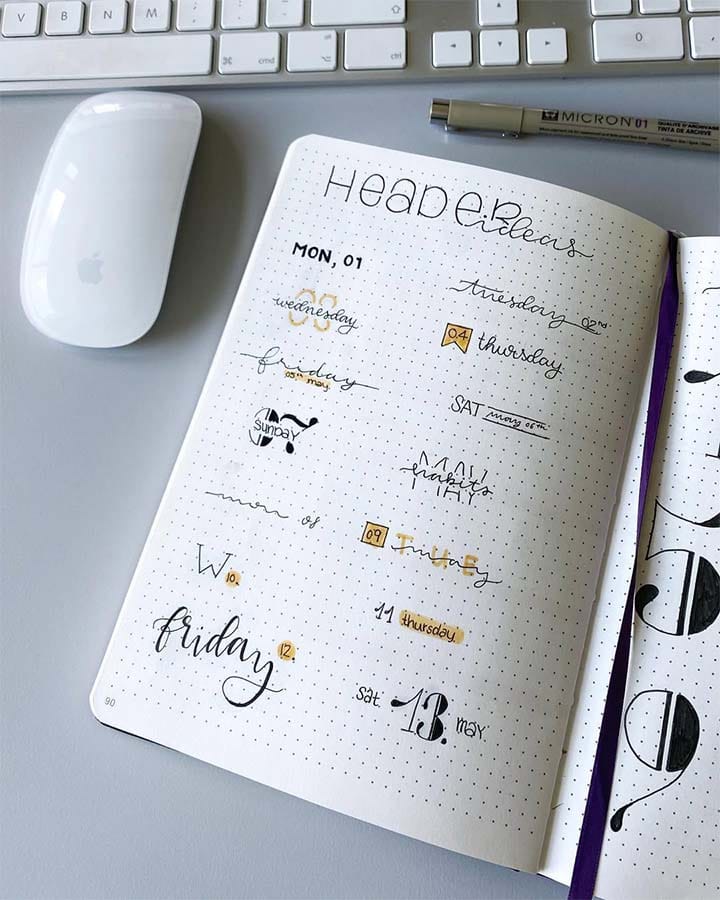 V B N M
cmd ctrl 0
MICRON 01
QUALITÉ D'ARCHIVAGE
TINTA DE ARCHIVE
HEADER
ideas
MON, 01
tuesday 02nd
03
wednesday
04 thursday
friday
05th may.
SAT may 06th
07
SUNDAY
MAY
habits
mon 08
09 TUE
Tuesday
W 10.
11 thursday.
friday 12.
sat 13. may.
90
5
9